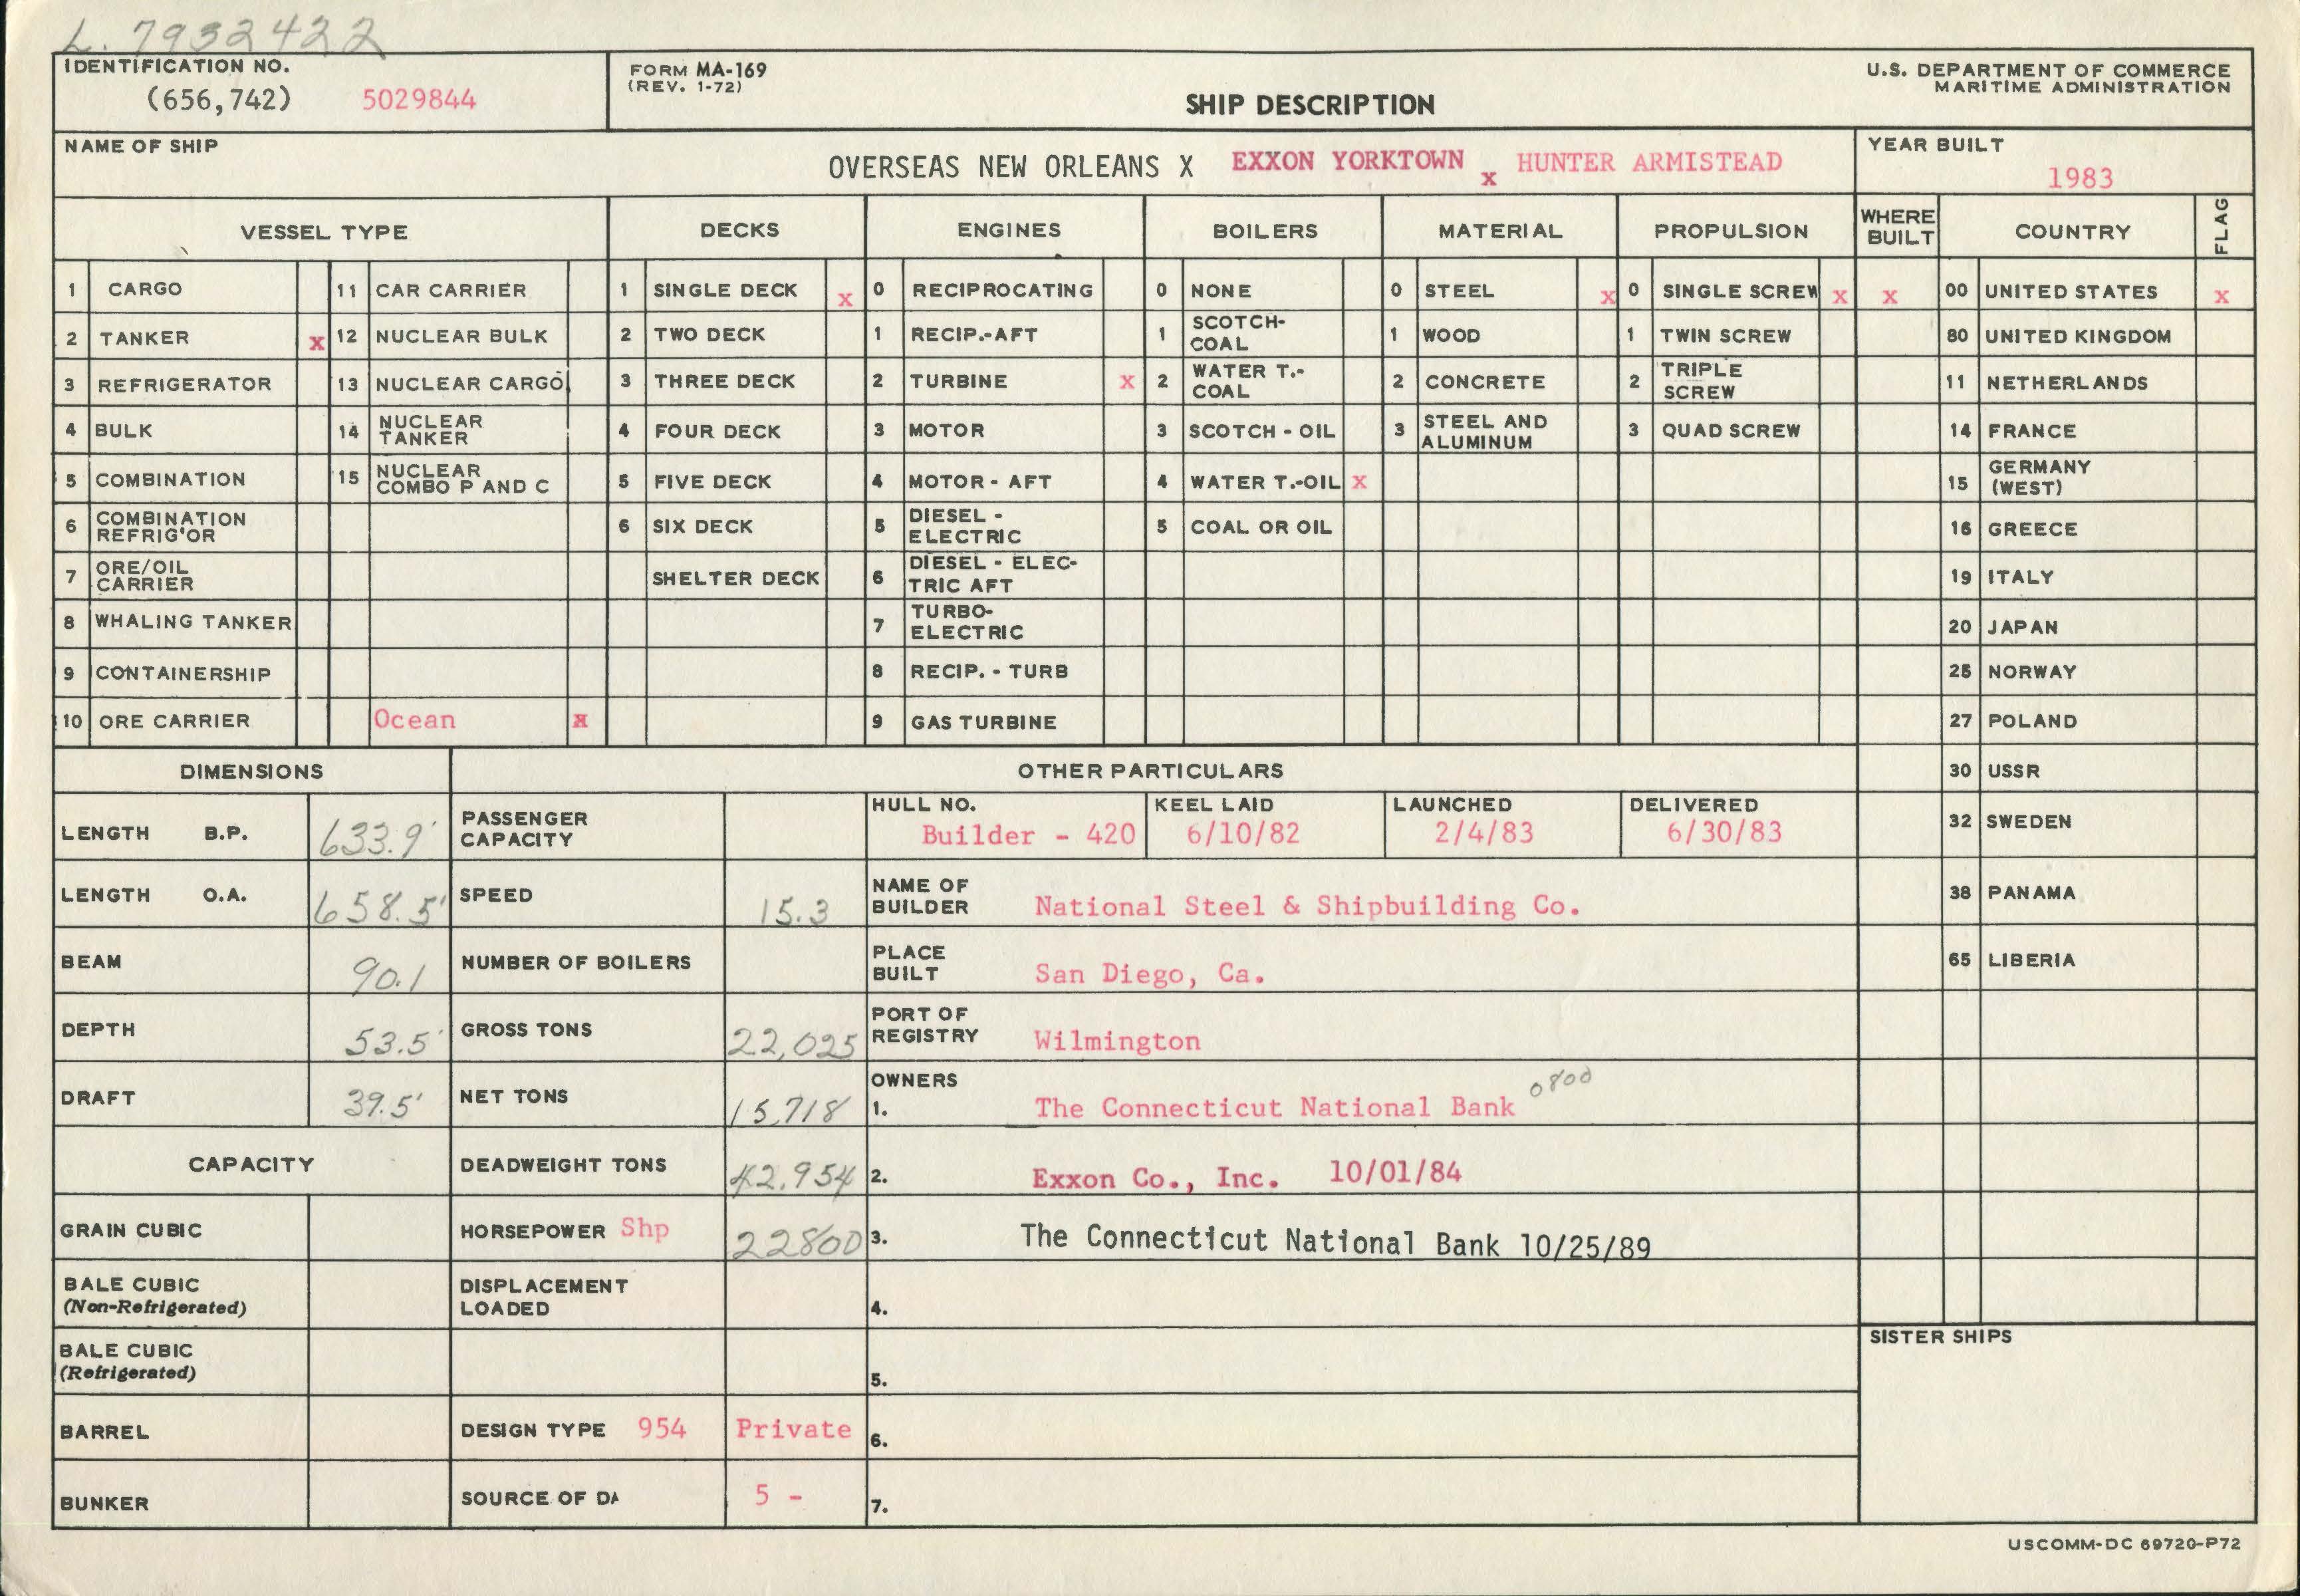 L. 7932422
IDENTIFICATION NO.
(656,742) 5029844
FORM MA-169
(REV. 1-72)
SHIP DESCRIPTION
U.S. DEPARTMENT OF COMMERCE
MARITIME ADMINISTRATION
NAME OF SHIP
OVERSEAS NEW ORLEANS X EXXON YORKTOWN x HUNTER ARMISTEAD
YEAR BUILT
1983
VESSEL TYPE DECKS ENGINES BOILERS MATERIAL PROPULSION WHERE BUILT COUNTRY FLAG
1 CARGO 11 CAR CARRIER 1 SINGLE DECK x 0 RECIPROCATING 0 NONE 0 STEEL x 0 SINGLE SCREW x x 00 UNITED STATES x
2 TANKER x 12 NUCLEAR BULK 2 TWO DECK 1 RECIP.-AFT 1 SCOTCH-COAL 1 WOOD 1 TWIN SCREW 80 UNITED KINGDOM
3 REFRIGERATOR 13 NUCLEAR CARGO 3 THREE DECK 2 TURBINE x 2 WATER T.-COAL 2 CONCRETE 2 TRIPLE SCREW 11 NETHERLANDS
4 BULK 14 NUCLEAR TANKER 4 FOUR DECK 3 MOTOR 3 SCOTCH - OIL 3 STEEL AND ALUMINUM 3 QUAD SCREW 14 FRANCE
5 COMBINATION 15 NUCLEAR COMBO P AND C 5 FIVE DECK 4 MOTOR - AFT 4 WATER T.-OIL x 15 GERMANY (WEST)
6 COMBINATION REFRIG'OR 6 SIX DECK 5 DIESEL - ELECTRIC 5 COAL OR OIL 16 GREECE
7 ORE/OIL CARRIER SHELTER DECK 6 DIESEL - ELEC-TRIC AFT 19 ITALY
8 WHALING TANKER 7 TURBO-ELECTRIC 20 JAPAN
9 CONTAINERSHIP 8 RECIP. - TURB 25 NORWAY
10 ORE CARRIER Ocean x 9 GAS TURBINE 27 POLAND
DIMENSIONS OTHER PARTICULARS 30 USSR
LENGTH B.P. 633.9' PASSENGER CAPACITY HULL NO. Builder - 420 KEEL LAID 6/10/82 LAUNCHED 2/4/83 DELIVERED 6/30/83 32 SWEDEN
LENGTH O.A. 658.5' SPEED 15.3 NAME OF BUILDER National Steel & Shipbuilding Co. 38 PANAMA
BEAM 90.1 NUMBER OF BOILERS PLACE BUILT San Diego, Ca. 65 LIBERIA
DEPTH 53.5' GROSS TONS 22,025 PORT OF REGISTRY Wilmington
DRAFT 39.5' NET TONS 15,718 OWNERS 1. The Connecticut National Bank 0800
CAPACITY DEADWEIGHT TONS 42,954 2. Exxon Co., Inc. 10/01/84
GRAIN CUBIC HORSEPOWER Shp 22800 3. The Connecticut National Bank 10/25/89
BALE CUBIC (Non-Refrigerated) DISPLACEMENT LOADED 4.
SISTER SHIPS
BALE CUBIC (Refrigerated) 5.
BARREL DESIGN TYPE 954 Private 6.
BUNKER SOURCE OF DA 5 - 7.
USCOMM-DC 69720-P72